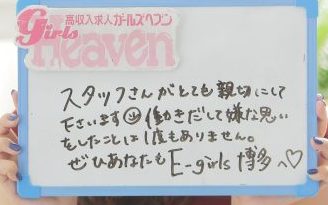 高収入求人ガールズヘブン
Girls
Heaven
スタッフさんがとても親切にして
下さいます 働きだして嫌な思い
をしたことは1度もありません。
ぜひあなたも E-girls 博多へ♡